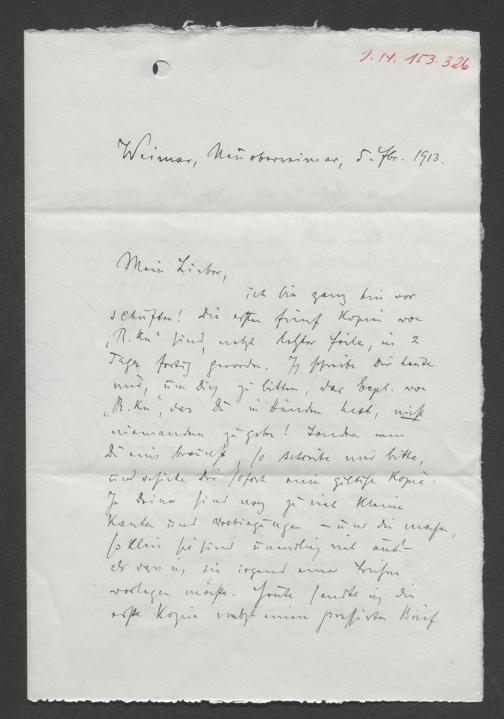 J. N. 153.326
Weimar, Neuoberweimar, 5. Febr. 1913.
Mein Lieber,
ich bin ganz hin vor
schuften! Die ersten fünf Kopien von
"R.Ku" sind, nebst letzter Feile, in 2
Tagen fertig geworden. Ich schreibe Dir heute
nur, um Dich zu bitten, das Expl. von
"R.Ku", das Du in Händen hast, nicht
niemandem zu geben! Sondern wenn
Du eins brauchst, so schreibe mir bitte,
und schicke Dir sofort eine giltige Kopie.
In Deiner sind noch zu viel kleine
Kanten und Verbiegungen – und die machen,
so klein sie sind unendlich viel aus! –
als dass ich sie irgend einer
vorlegen möchte. Heute sandte ich die
erste Kopie nebst einem Brief